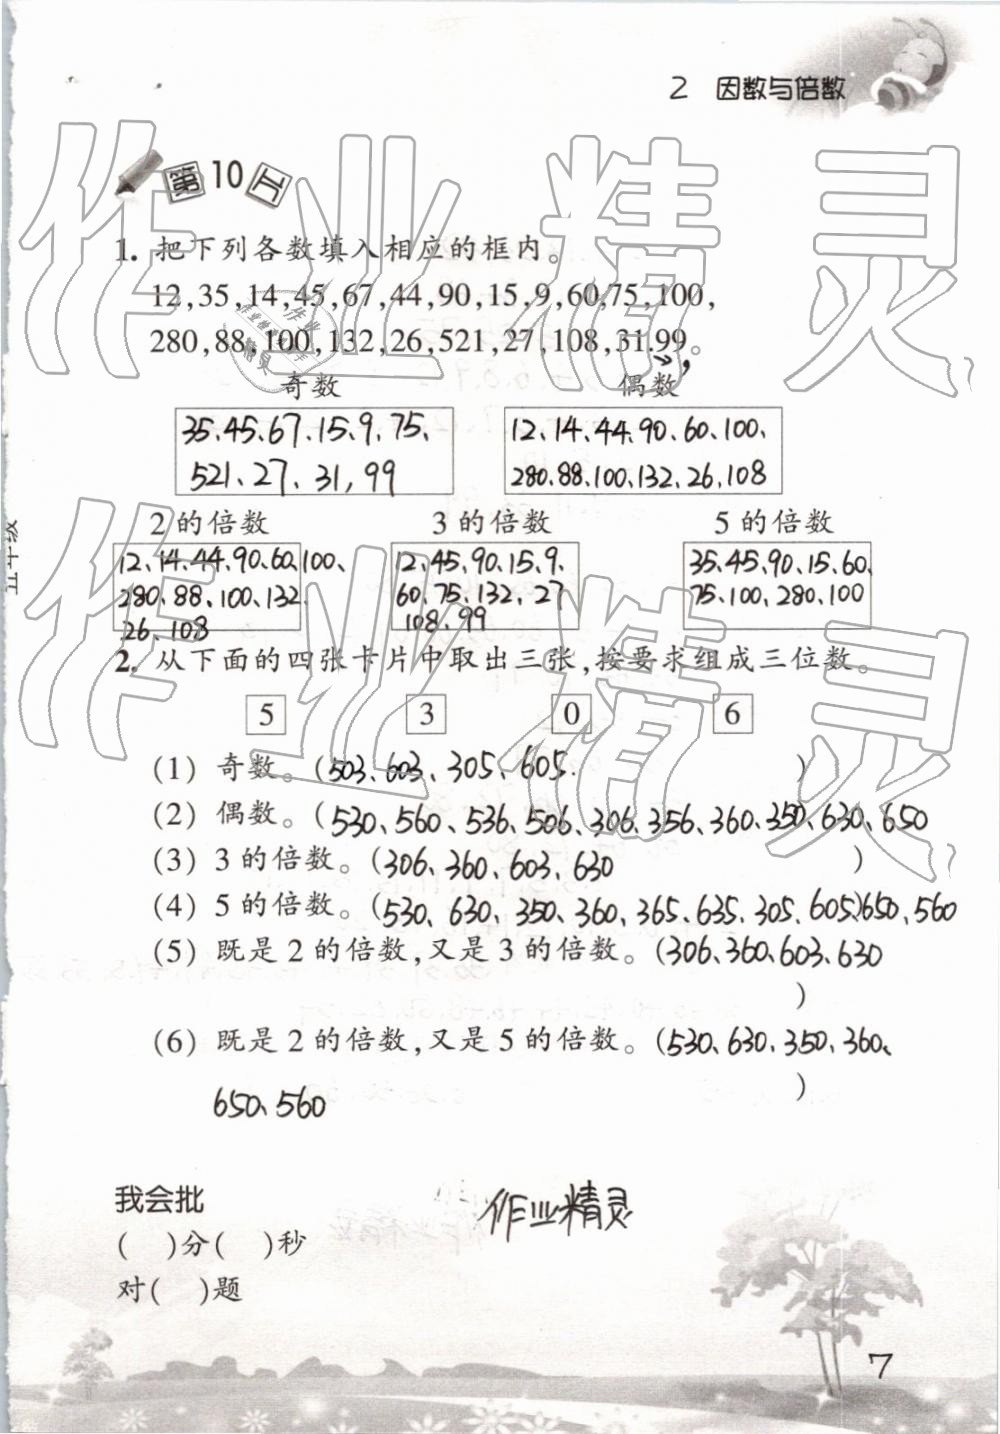 2 因数与倍数
第10页
1. 把下列各数填入相应的框内。
12,35,14,45,67,44,90,15,9,60,75,100,
280,88,100,132,26,521,27,108,31,99。
奇数 偶数
35、45、67、15、9、75、 12、14、44、90、60、100、
521、27、31,99 280、88、100、132、26、108
2的倍数 3的倍数 5的倍数
12、14、44、90、60、100、 12、45、90、15、9、 35、45、90、15、60、
280、88、100、132、 60、75、132、27 75、100、280、100
26、108 108、99
2. 从下面的四张卡片中取出三张,按要求组成三位数。
5 3 0 6
(1) 奇数。(503、603、305、605、 )
(2) 偶数。(530、560、536、506、306、356、360、350、630、650
(3) 3的倍数。(306、360、603、630 )
(4) 5的倍数。(530、630、350、360、365、635、305、605)650、560
(5) 既是2的倍数,又是3的倍数。(306、360、603、630
)
(6) 既是2的倍数,又是5的倍数。(530、630、350、360、
650、560 )
我会批
( )分( )秒
对( )题
作业精灵
7
五年级
作业精灵
作业精灵